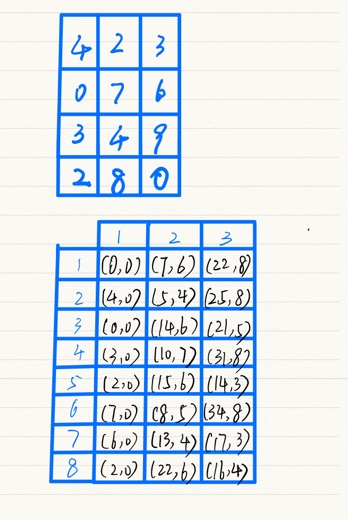 4 2 3
0 7 6
3 4 9
2 8 0
1 2 3
1 (0,0) (7,6) (22,8)
2 (4,0) (5,4) (25,8)
3 (0,0) (14,6) (21,5)
4 (3,0) (10,7) (31,8)
5 (2,0) (15,6) (14,3)
6 (7,0) (8,5) (34,8)
7 (6,0) (13,4) (17,3)
8 (2,0) (22,6) (16,4)